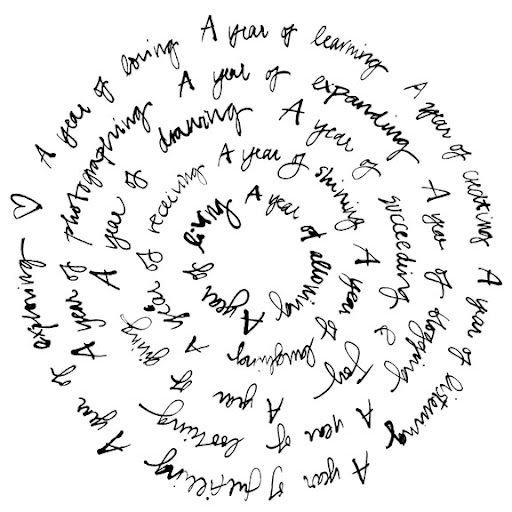 A year of loving
A year of learning
A year of creating
A year of listening
A year of fulfilling
A year of exploring ♡
A year of photographing
A year of expanding
A year of blogging
A year of looking
A year of drawing
A year of succeeding & Joy
A year of giving
A year of receiving
A year of shining
A year of laughing
A year of living
A year of allowing